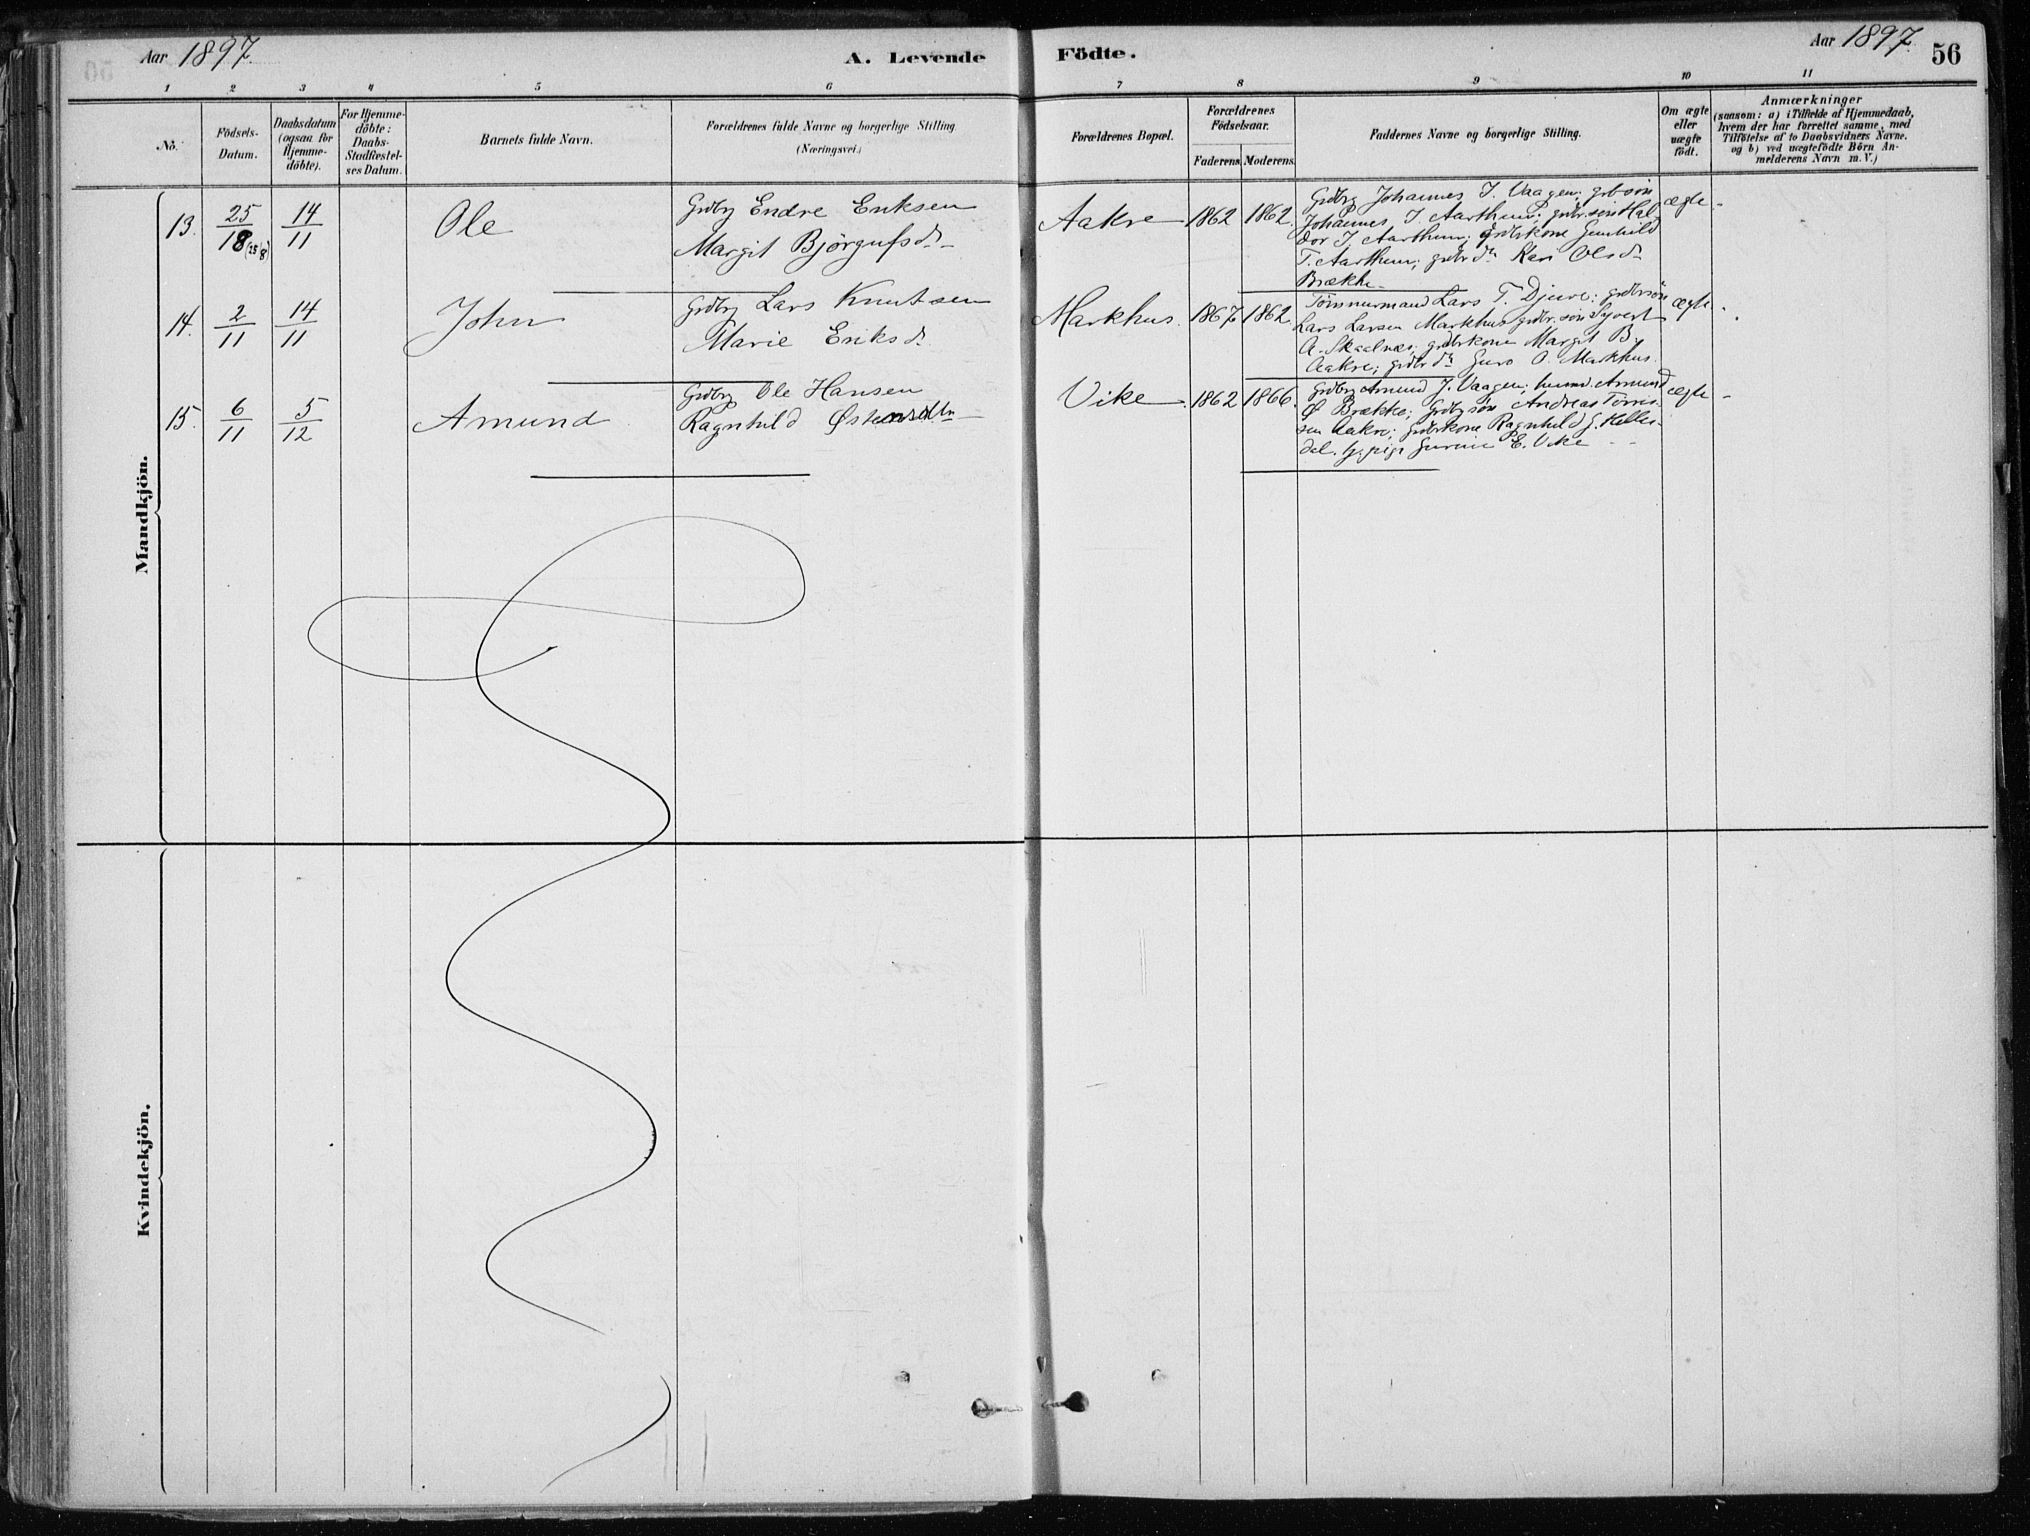 Aar 1897.
A. Levende
Födte.
Aar 1897.
56
1 2 3 4 5 6 7 8 9 10 11
No.
Födsels-
Datum.
Daabsdatum
(ogsaa for
Hjemme-
döbte).
For Hjemme-
döbte:
Daabs-
Stadfæstel-
ses Datum.
Barnets fulde Navn.
Forældrenes fulde Navne og borgerlige Stilling
(Næringsvei.)
Forældrenes Bopæl.
Forældrenes
Födselsaar.
Faderens. Moderens.
Faddernes Navne og borgerlige Stilling.
Om ægte
eller
uægte
födt.
Anmærkninger
(saasom: a) i Tilfælde af Hjemmedaab,
hvem der har forrettet samme, med
Tilföielse af to Daabsvidners Navne.
og b) ved uægtefödte Börn An-
melderens Navn m. V.)
Mandkjön.
13. 25/18 (25/8) 14/11 Ole
Grdbrg Endre Eriksen
Margit Bjørgufsd.
Aakre 1862 1862.
Grdbrg Johannes J. Vaagen; grbrsøn
Johannes J. Aarthun; grdbr.søn Hal-
dor J. Aarthun; grdbrskone Gunhild
T. Aarthun; grdbr dr Kari Olsdr
Brække.
ægte.
14. 2/11 14/11 John
Grdbrg Lars Knutsen
Marie Eriksd.
Markhus. 1867 1862.
Tømmermand Lars T. Djuve; grdbrsøn
Lars Larsen Markhus grdbr.søn Syvert
A. Skaalnæs; grdbrskone Margit B.
Aakre; grdbr dr Guro O. Markhus.
ægte.
15. 6/11 5/12 Amund
Grdbrg Ole Hansen
Ragnhild Østensdtr
Vike 1862 1866.
Grdbrg Amund J. Vaagen; Amund
Ø Brække; Grdbrsøn Andreas Torris-
sen Aakre; grdbrskone Ragnhild G. Helles-
dal. pige Gurine E. Vike
ægte
Kvindekjön.